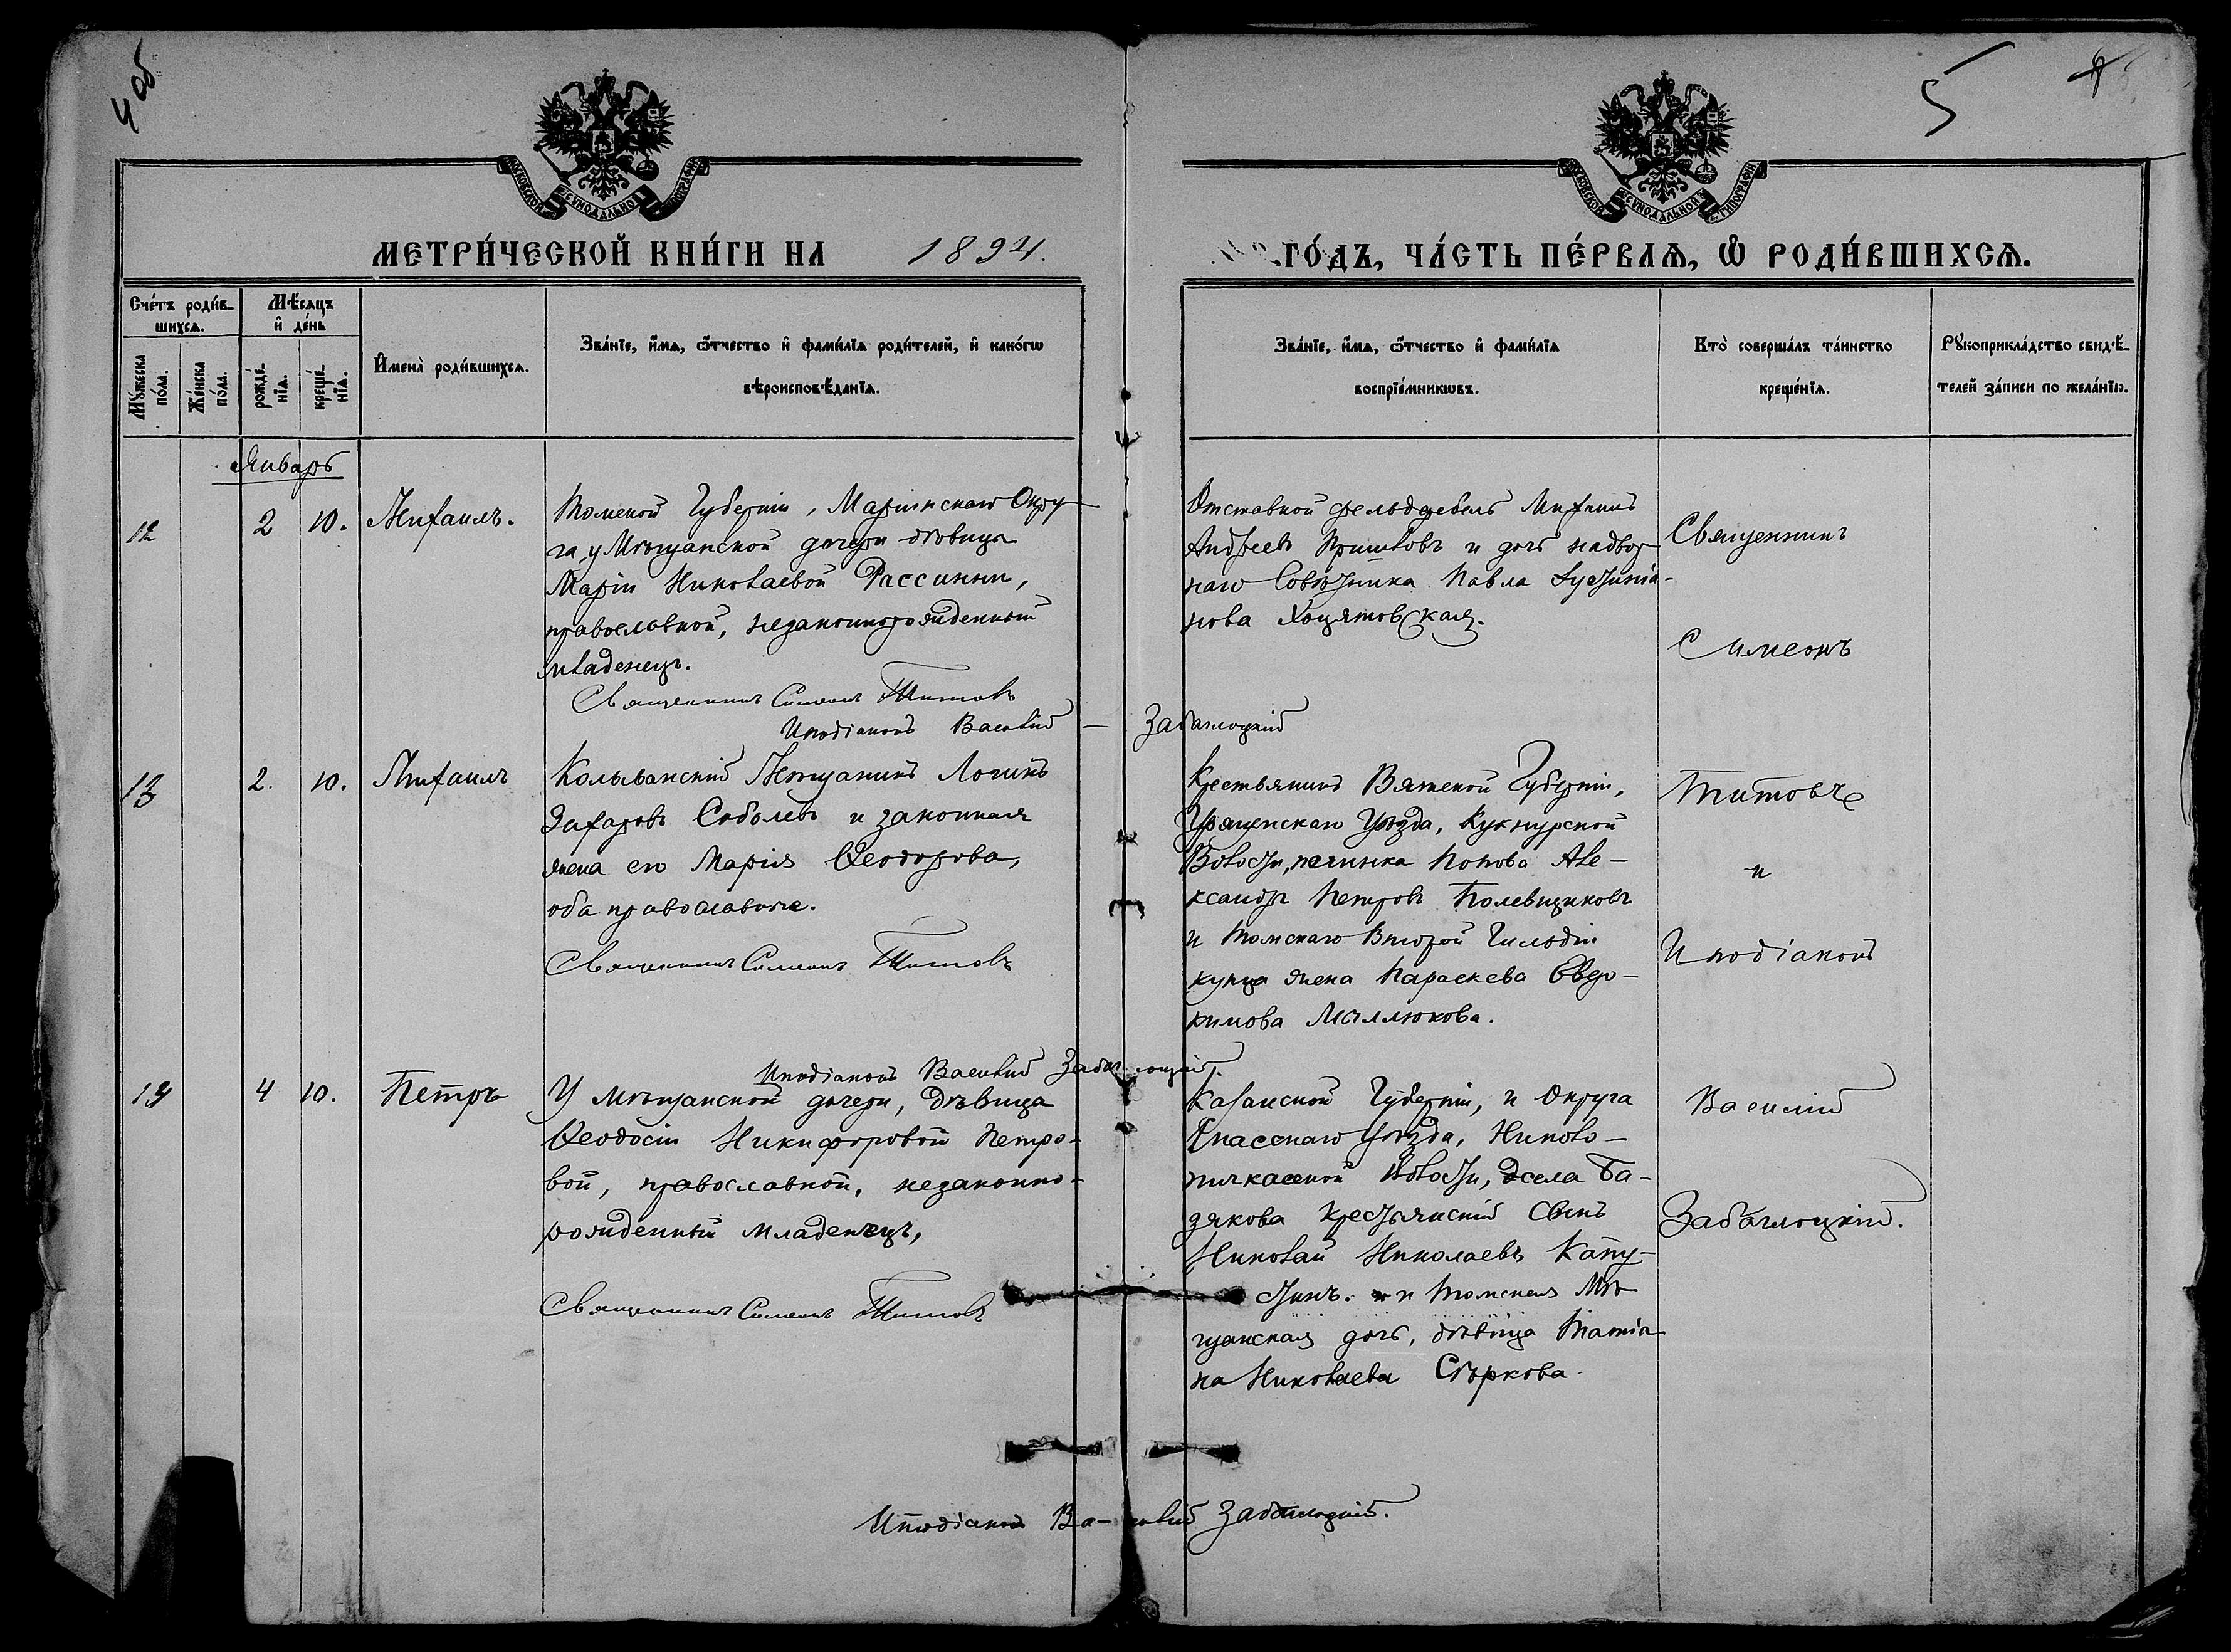 4 об
5
МОСКОВСКОЙ СѴНОДАЛЬНОЙ ТИПОГРАФІИ
МОСКОВСКОЙ СѴНОДАЛЬНОЙ ТИПОГРАФІИ
МЕТРИ́ЧЕСКОЙ КНИ́ГИ НА 1894.
ГО́ДЪ, ЧА́СТЬ ПЕ́РВАѦ, Ѽ РОДИ́ВШИХСѦ.
Сче́тъ роди́в-
шихсѧ.
Мꙋ́жеска по́ла.
Же́нска по́ла.
Мѣ́сѧцъ
и҆ де́нь
рожде́-
нїѧ.
креще́-
нїѧ.
И҆мена̀ роди́вшихсѧ.
Зва́нїе, и҆́мѧ, ѻ҆́тчество и҆ фами́лїѧ роди́телей, и҆ како́гѡ
вѣроисповѣ́данїѧ.
Зва́нїе, и҆́мѧ, ѻ҆́тчество и҆ фами́лїѧ
воспрїе́мникѡвъ.
Кто̀ соверша́лъ та́инство
креще́нїѧ.
Рꙋкоприкла́дство свидѣ́-
телей за́писи по жела́нїю.
Январь
12 2 10. Михаилъ.
Томской Губерніи, Маріинскаго Окру-
га, у Мѣщанской дочери дѣвицы
Маріи Николаевой Рассиныи,
православной, незаконнорожденный
младенецъ.
Священникъ Симеонъ Титовъ
Иподіаконъ Василій – Забатлоцкій
Отставной фельдфебель Михаилъ
Андреевъ Пришковъ и дочь надвор-
наго Совѣтника Павла Іустинiа-
нова Хоцятовская.
Священникъ
Симеонъ
13 2. 10. Михаилъ
Колыванскій Мѣщанинъ Логинъ
Захаровъ Соболевъ и законная
жена его Марія Ѳеодорова,
оба православные.
Священникъ Симеонъ Титовъ
Иподіаконъ Василій Забатлоцкій.
Крестьянинъ Вятской Губерніи,
Уѣзда, Кукнурской
Волости, починка Попова Але-
ксандръ Петровъ Полевщиковъ
и Томскаго Второй Гильдіи
купца жена Параскева Евдо-
кимова Маллюкова.
Титовъ
и
Иподіаконъ
14 4 10. Петръ
У мѣщанской дочери, дѣвицы
Ѳеодосіи Никифоровой Петро-
вой, православной, незаконно-
рожденный младенецъ,
Священникъ Симеонъ Титовъ
Казанской Губерніи, и Округа
Спасскаго Уѣзда, Николо-
пичкасской Волости, села Ба-
дякова крестьянскій сынъ
Николай Николаевъ Капу-
стинъ. и Томская Мѣ-
щанская дочь, дѣвица Татiа-
на Николаева Сѣркова.
Василій
Забатлоцкій.
Иподіаконъ Ва-силій Забатлоцкій.